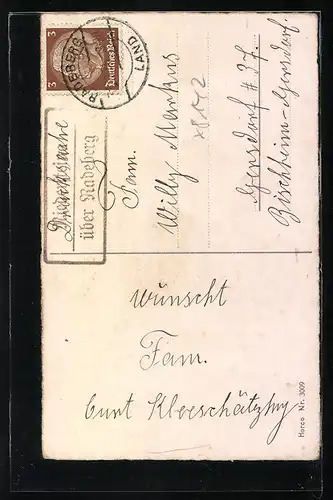 3 Deutsches Reich 3
RADEBERG
LAND
über Radeberg
Fam.
Willy Markus
Gersdorf #37.
Bischheim-Gersdorf.
wünscht
Fam.
Curt
Horco Nr. 3009